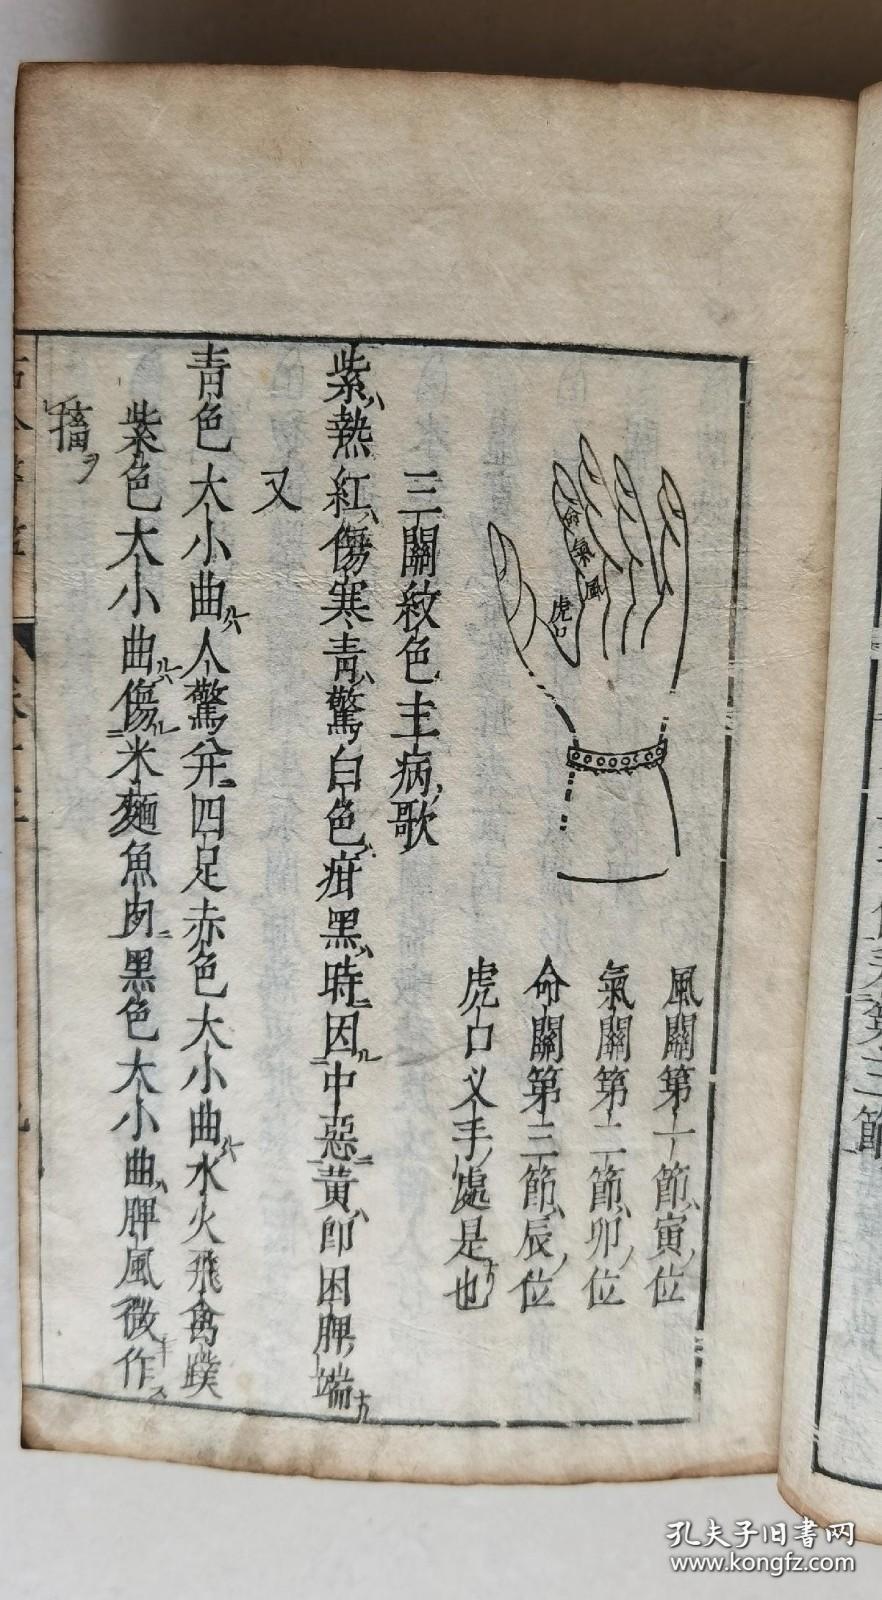 命
氣
風
虎口
風關第一節寅位
氣關第二節卯位
命關第三節辰位
虎口叉手處是也
三關紋色主病歌
紫熱紅傷寒青驚白色疳黑時因中惡黃即困脾端
又
青色大小曲人驚并四足赤色大小曲水火飛禽蹼
紫色大小曲傷米麵魚肉黑色大小曲脾風微作
搐
孔夫子旧书网
www.kongfz.com